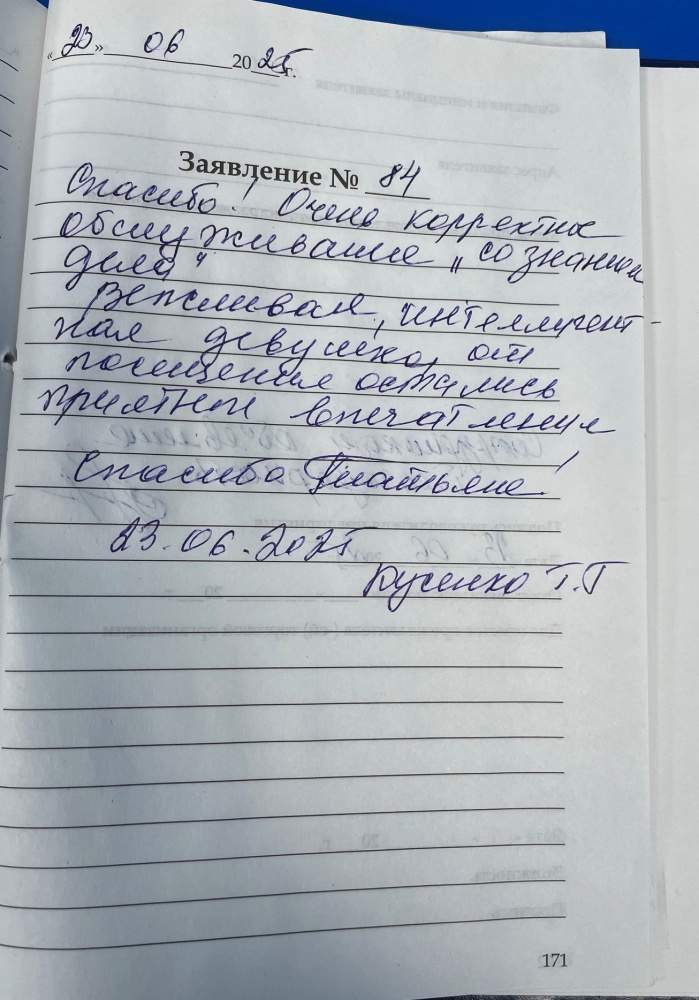 «23» 06 2025 г.
Заявление № 84
Спасибо! Очень корректное
обслуживание „со знанием
дела"
Вежливая, интеллигент-
ная девушка, от
посещения остались
приятные впечатления
Спасибо Татьяне!
23.06.2025
Кусенко Т.Г
171